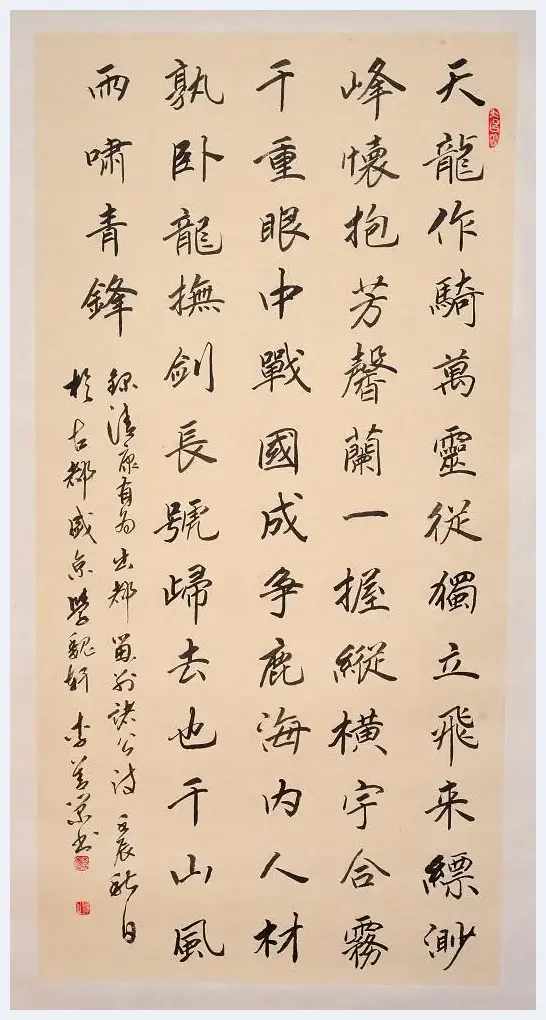 天龍作騎萬靈從獨立飛来縹渺
峰懷抱芳馨蘭一握縱橫宇合霧
千重眼中戰國成争鹿海内人材
孰卧龍撫劍長號㱕去也千山風
雨嘯青鋒
録清康有為出都留别諸公詩 壬辰秋日
於古都盛京學魏軒 李善書